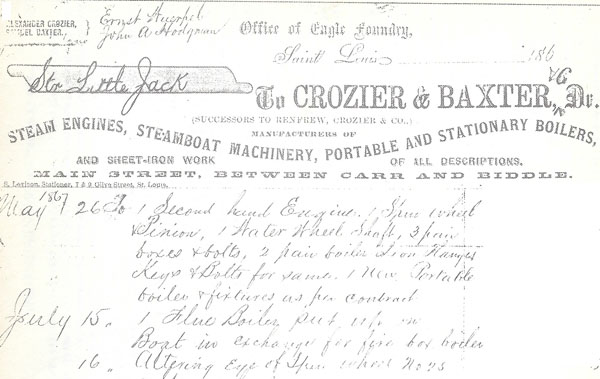 ALEXANDER CROZIER,
SAMUEL BAXTER,
Ernst
John A Hodgman
Office of Eagle Foundry,
Saint Louis 186
Str Little Jack
To CROZIER & BAXTER, Dr.
(SUCCESSORS TO RENFREW, CROZIER & CO.)
MANUFACTURERS OF
STEAM ENGINES, STEAMBOAT MACHINERY, PORTABLE AND STATIONARY BOILERS,
AND SHEET-IRON WORK OF ALL DESCRIPTIONS.
MAIN STREET, BETWEEN CARR AND BIDDLE.
Stationer, 7 & 9 Olive Street, St. Louis.
1867
May 26 To 1 Second hand Engine. 1 Spur wheel
& Pinion, 1 Water Wheel Shaft, 3 pair
boxes & bolts, 2 pair boiler Iron Flanges
Keys & Bolts for same. 1 New Portable
boiler & fixtures as per contract
July 15 " 1 Flue Boiler put up on
Boat in exchange for fire box boiler
16 " Altering Eye of Spur wheel No 25